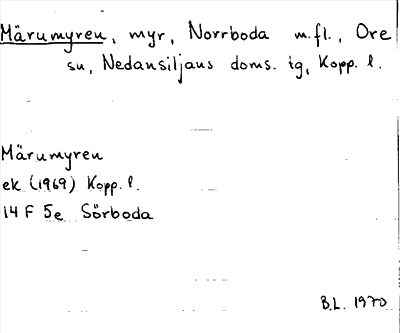 Märumyren, myr, Norrboda m.fl., Ore
sn, Nedansiljans doms. tg, Kopp. l.
Märumyren
ek (1969) Kopp. l.
14 F 5e Sörboda
B.L. 1970